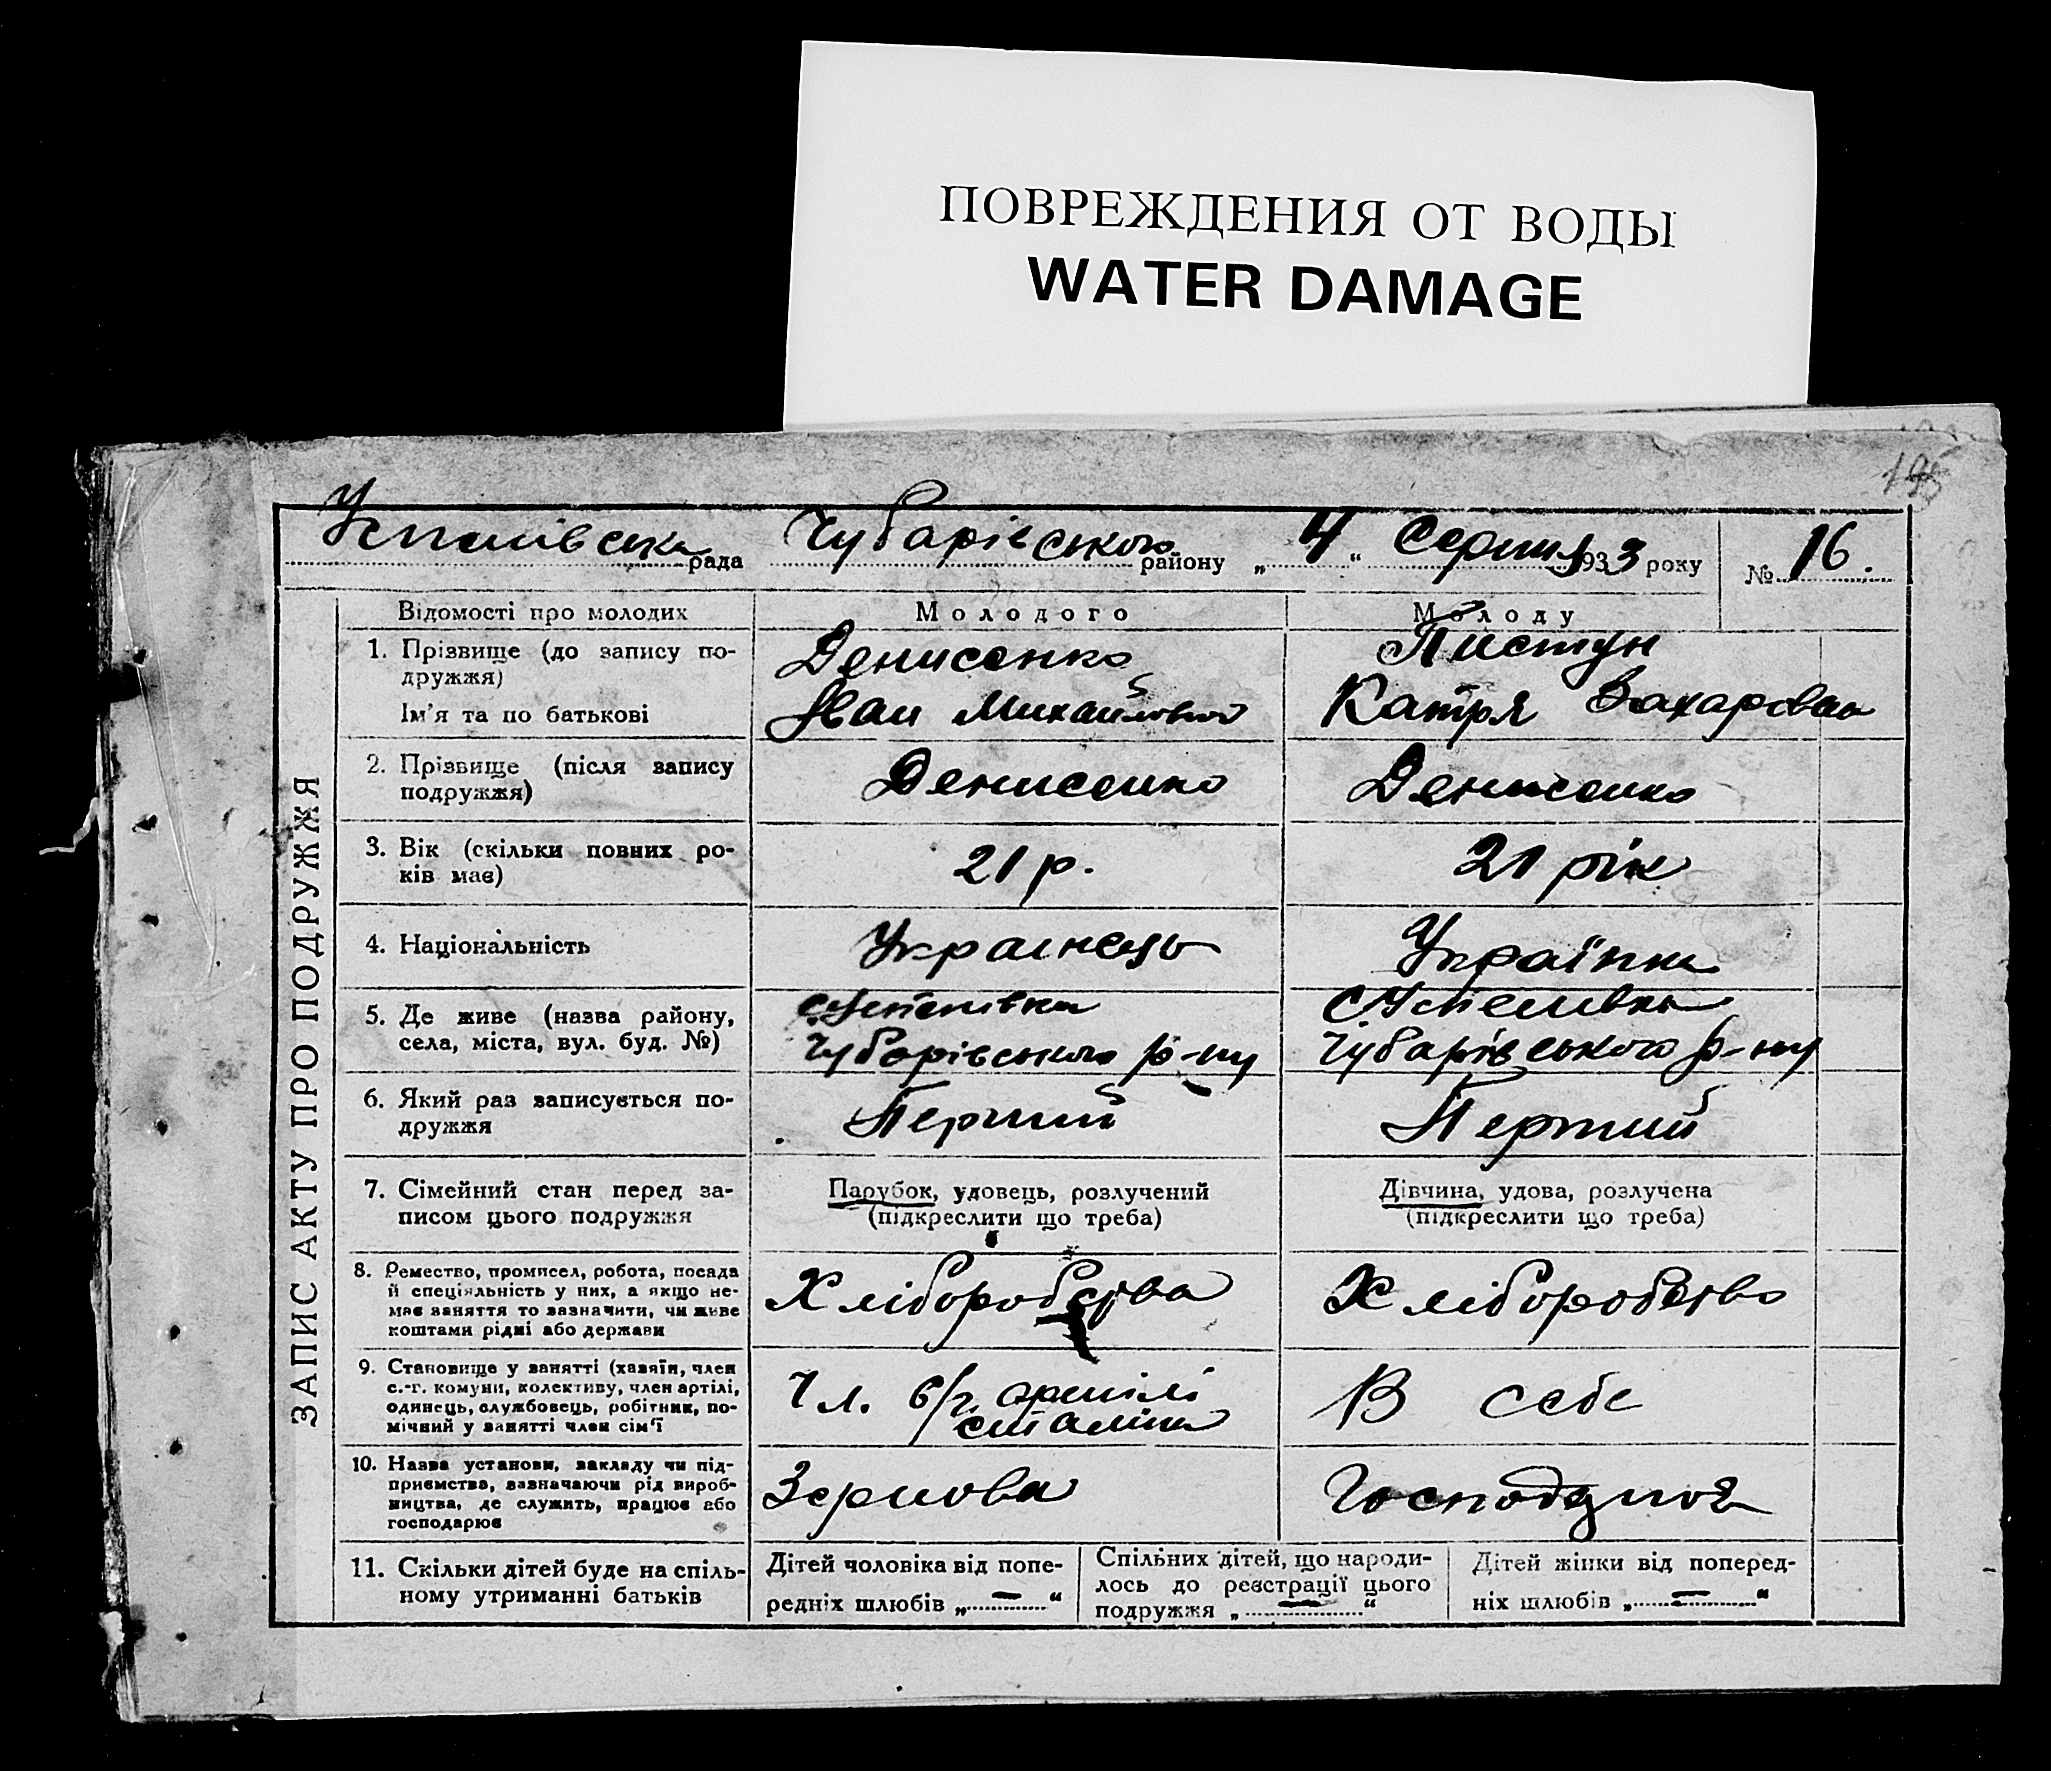 ПОВРЕЖДЕНИЯ ОТ ВОДЫ
WATER DAMAGE
ЗАПИС АКТУ ПРО ПОДРУЖЖЯ
Успенівська рада Чубарівського району „ 4 “ Серпня 1933 року № 16.
Відомості про молодих
Молодого
Молоду
1. Прізвище (до запису по-
дружжя)
Ім'я та по батькові
Денисенко
Іван Михайлович
Пистун
Катря Захаровна
2. Прізвище (після запису
подружжя)
Денисенко
Денисенко
3. Вік (скільки повних ро-
ків має)
21 р.
21 рік
4. Національність
Украінець
Українка
5. Де живе (назва району,
села, міста, вул. буд. №)
с Успенівка
Чубарівського р-ну
с Успенивка
Чубарівського р-ну
6. Який раз записується по-
дружжя
Перший
Перший
7. Сімейний стан перед за-
писом цього подружжя
Парубок, удовець, розлучений
(підкреслити що треба)
Дівчина, удова, розлучена
(підкреслити що треба)
8. Ремество, промисел, робота, посада
й спеціяльність у них, а якщо не-
має заняття то зазначити, чи живе
коштами рідні або держави
Хліборобства
Хліборобство
9. Становище у занятті (хазяїн, член
с.-г. комуни, колективу, член артілі,
одинець, службовець, робітник, по-
мічний у занятті член сім'ї
Чл. с/г. артілі
сталіна
В себе
10. Назва установи, закладу чи під-
приємства, зазначаючи рід вироб-
ництва, де служить, працює або
господарює
Зернова
11. Скільки дітей буде на спіль-
ному утриманні батьків
Дітей чоловіка від попе-
редніх шлюбів „ — “
Спільних дітей, що народи-
лось до реєстрації цього
подружжя „ — “
Дітей жінки від поперед-
ніх шлюбів „ — “